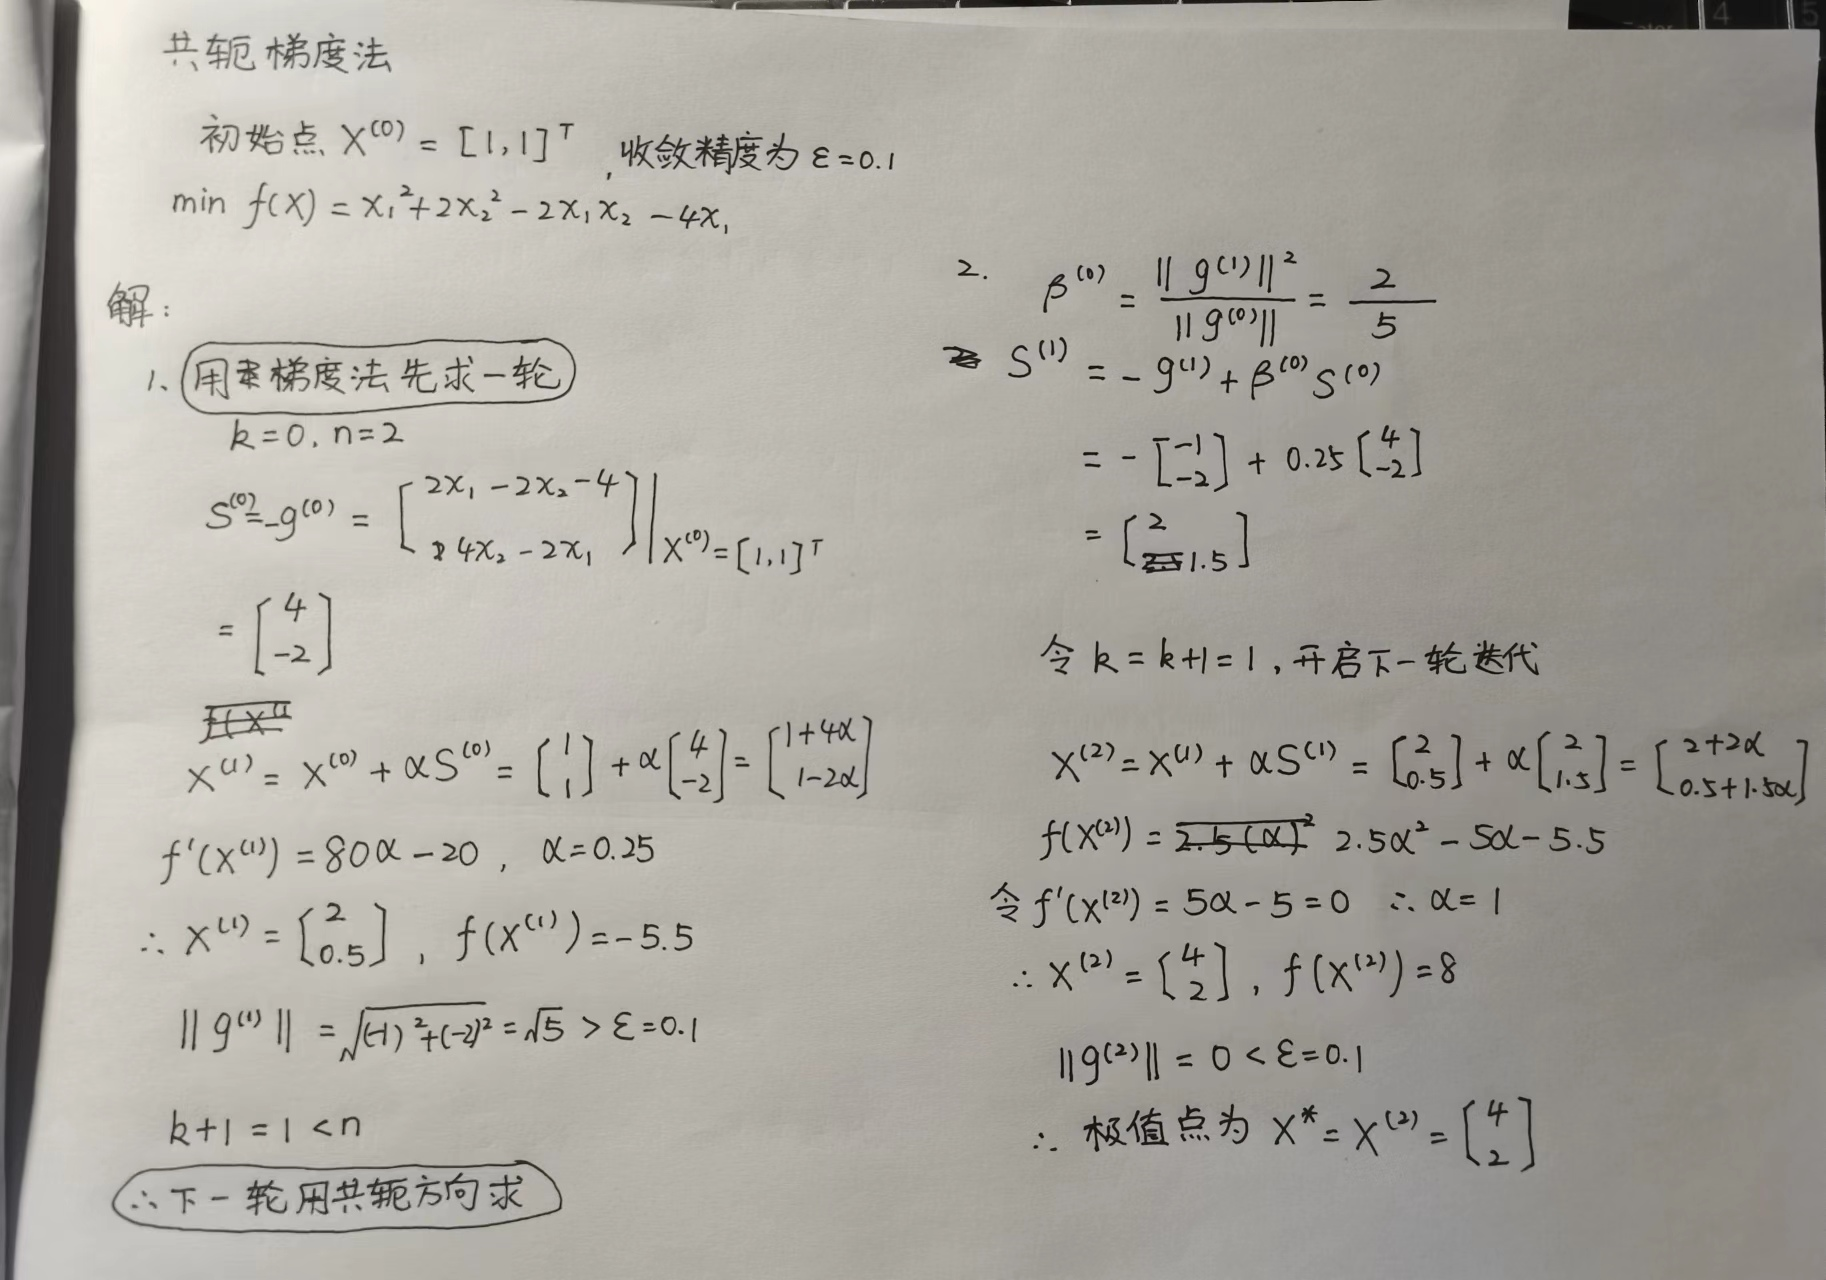 共轭梯度法
初始点 X^(0) = [1,1]^T ,收敛精度为 ε=0.1
min f(X) = x₁²+2x₂²-2x₁x₂-4x₁
解:
1、用梯度法先求一轮
k=0, n=2
S^(0)=-g^(0) = [2x₁-2x₂-4; 4x₂-2x₁]|X^(0)=[1,1]^T
= [4; -2]
X^(1) = X^(0) + αS^(0) = [1; 1] + α[4; -2] = [1+4α; 1-2α]
f'(X^(1)) = 80α-20 , α=0.25
∴ X^(1) = [2; 0.5] , f(X^(1)) = -5.5
||g^(1)|| = √((-1)²+(-2)²) = √5 > ε=0.1
k+1 = 1 < n
∴下一轮用共轭方向求
2. β^(0) = ||g^(1)||² / ||g^(0)|| = 2/5
S^(1) = -g^(1) + β^(0)S^(0)
= -[-1; -2] + 0.25[4; -2]
= [2; 1.5]
令 k=k+1=1, 开启下一轮迭代
X^(2) = X^(1) + αS^(1) = [2; 0.5] + α[2; 1.5] = [2+2α; 0.5+1.5α]
f(X^(2)) = 2.5α²-5α-5.5
令 f'(X^(2)) = 5α-5=0 ∴ α=1
∴ X^(2) = [4; 2] , f(X^(2)) = 8
||g^(2)|| = 0 < ε=0.1
∴ 极值点为 X* = X^(2) = [4; 2]
4
5